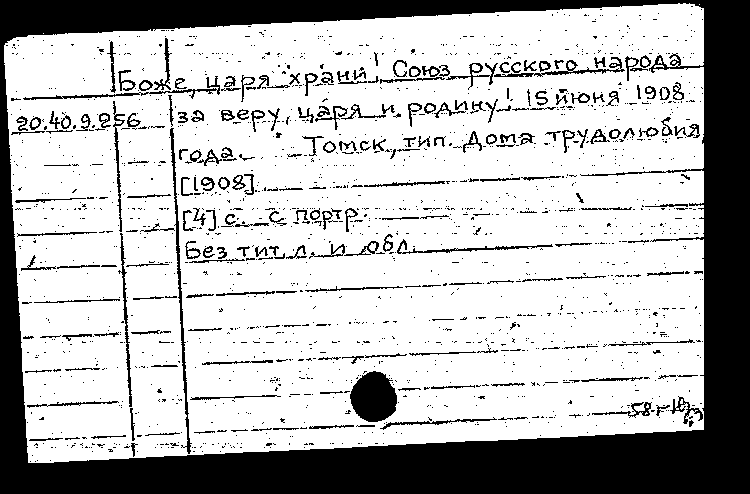 Боже, царя храни! Союз русского народа
20.40.9.256 за веру, царя и родину! 15 июня 1908
года. Томск, тип. Дома трудолюбия,
[1908]
[4] с. с портр.
Без тит. л. и обл.